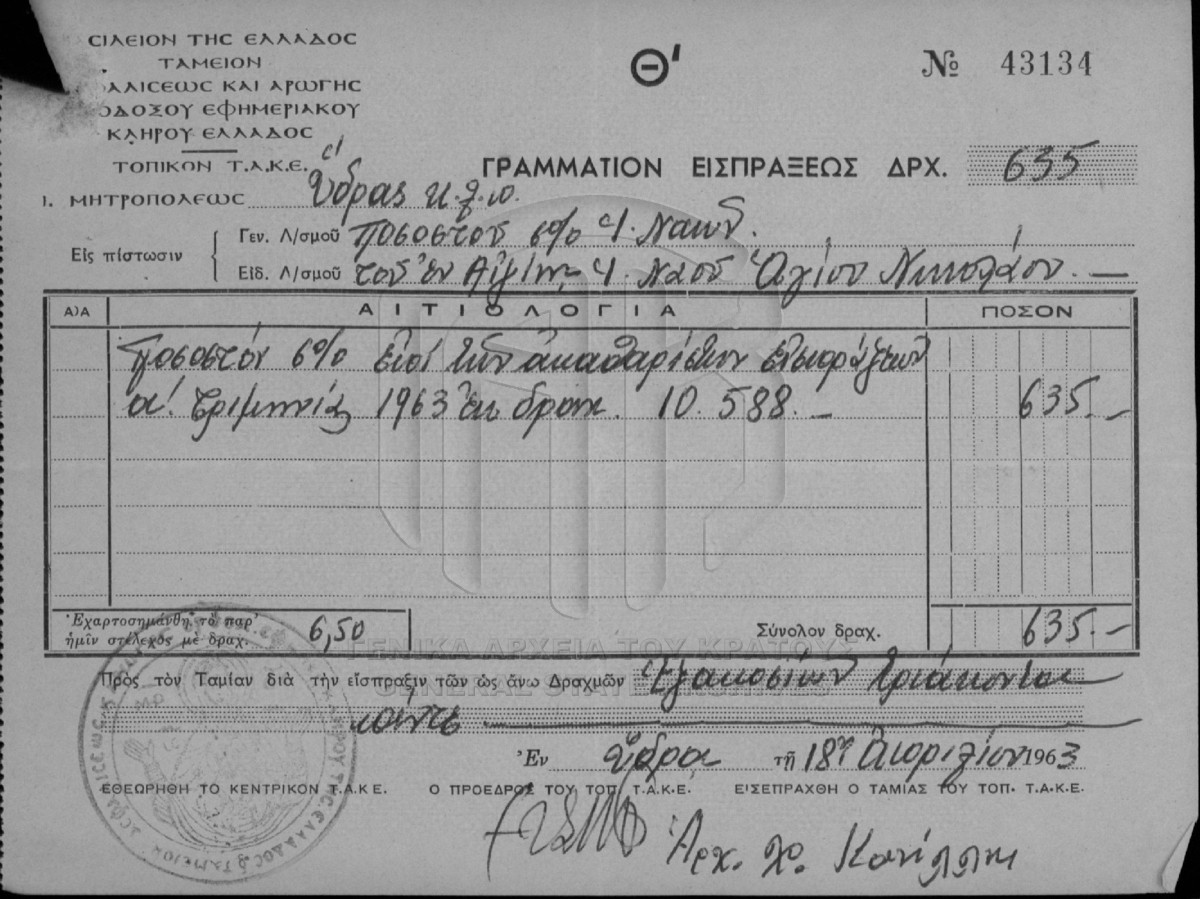 ΣΙΛΕΙΟΝ ΤΗΣ ΕΛΛΑΔΟΣ
ΤΑΜΕΙΟΝ
ΑΛΙΣΕΩΣ ΚΑΙ ΑΡΩΓΗΣ
ΟΔΟΞΟΥ ΕΦΗΜΕΡΙΑΚΟΥ
ΚΛΗΡΟΥ ΕΛΛΑΔΟΣ
Θ'
№ 43134
ΤΟΠΙΚΟΝ Τ.Α.Κ.Ε.
ΓΡΑΜΜΑΤΙΟΝ ΕΙΣΠΡΑΞΕΩΣ ΔΡΧ. 635
Ι. ΜΗΤΡΟΠΟΛΕΩΣ Ὕδρας
Εἰς πίστωσιν
Γεν. Λ/σμοῦ Ποσοστοῦ 6% Ἱ. Ναῶν.
Εἰδ. Λ/σμοῦ τοῦ ἐν Αἰγίνῃ Ἱ. Ναοῦ Ἁγίου Νικολάου. —
Α)Α ΑΙΤΙΟΛΟΓΙΑ ΠΟΣΟΝ
Ποσοστόν 6% ἐπί τῶν ἀκαθαρίστων εἰσπράξεων
α'. τριμηνίας 1963 ἐκ δραχ. 10.588.— 635.—
Ἐχαρτοσημάνθη τὸ παρ'
ἡμῖν στέλεχος μὲ δραχ. 6,50
Σύνολον δραχ. 635.—
ΓΕΝΙΚΑ ΑΡΧΕΙΑ ΤΟΥ ΚΡΑΤΟΥΣ
Πρὸς τὸν Ταμίαν διὰ τὴν εἴσπραξιν τῶν ὡς ἄνω Δραχμῶν Ἑξακοσίων τριάκοντα
πέντε
Ἐν Ὕδρᾳ τῇ 18ῃ Ἀπριλίου 1963
ΕΘΕΩΡΗΘΗ ΤΟ ΚΕΝΤΡΙΚΟΝ Τ.Α.Κ.Ε. Ο ΠΡΟΕΔΡΟΣ ΤΟΥ ΤΟΠ. Τ.Α.Κ.Ε. ΕΙΣΕΠΡΑΧΘΗ Ο ΤΑΜΙΑΣ ΤΟΥ ΤΟΠ. Τ.Α.Κ.Ε.
Ἀρχ.